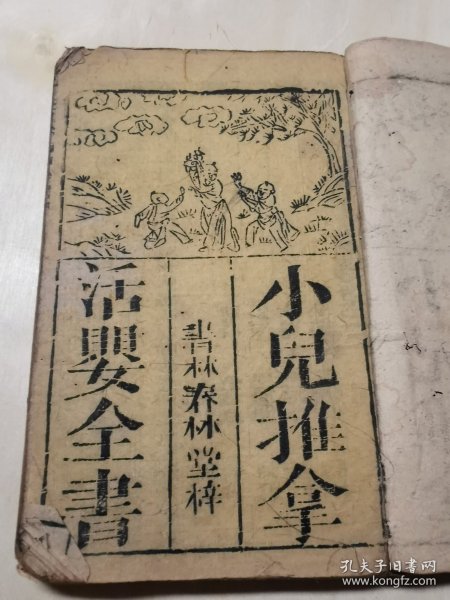 小兒推拿
書林春林堂梓
活嬰全書
孔夫子旧书网
www.kongfz.com